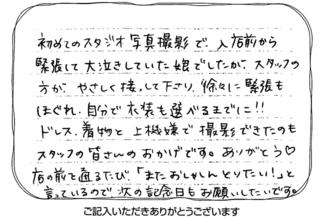 初めてのスタジオ写真撮影で、入店前から
緊張して大泣きしていた娘でしたが、スタッフの
方が、やさしく接して下さり、徐々に緊張も
ほぐれ、自分で衣装も選べるまでに!!
ドレス、着物と上機嫌で撮影できたのも
スタッフの皆さんのおかげです。ありがとう♡
店の前を通るたび、「またおしゃしんとりたい!」と
言っているので、次の記念日もお願いしたいです。
ご記入いただきありがとうございます